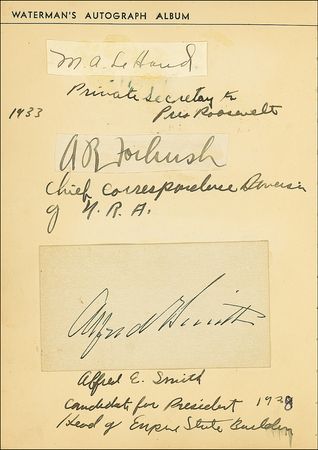 WATERMAN'S AUTOGRAPH ALBUM
M. A. Le Hand
Private Secretary to
1933 Pres Roosevelt
A R Forbush
Chief Correspondence Division
of N.R.A.
Alfred E Smith
Alfred E. Smith
Candidate for President 1928
Head of Empire State Building